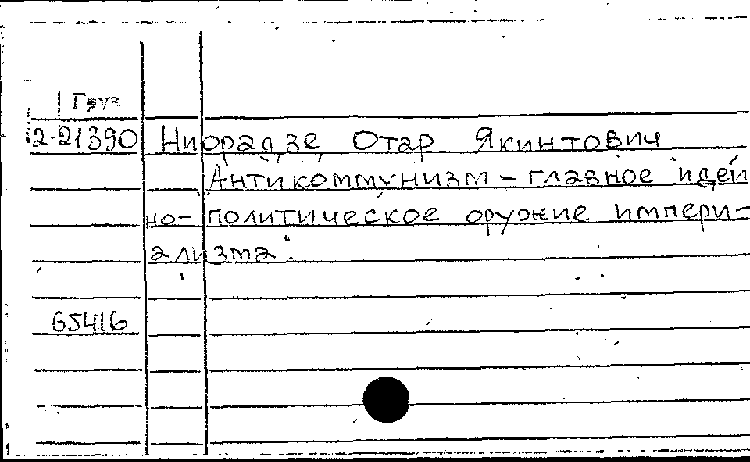 Груз
2-21390 Ниорадзе Отар Якинтович
Антикоммунизм - главное идей
но-политическое оружие импери-
ализма.
65416